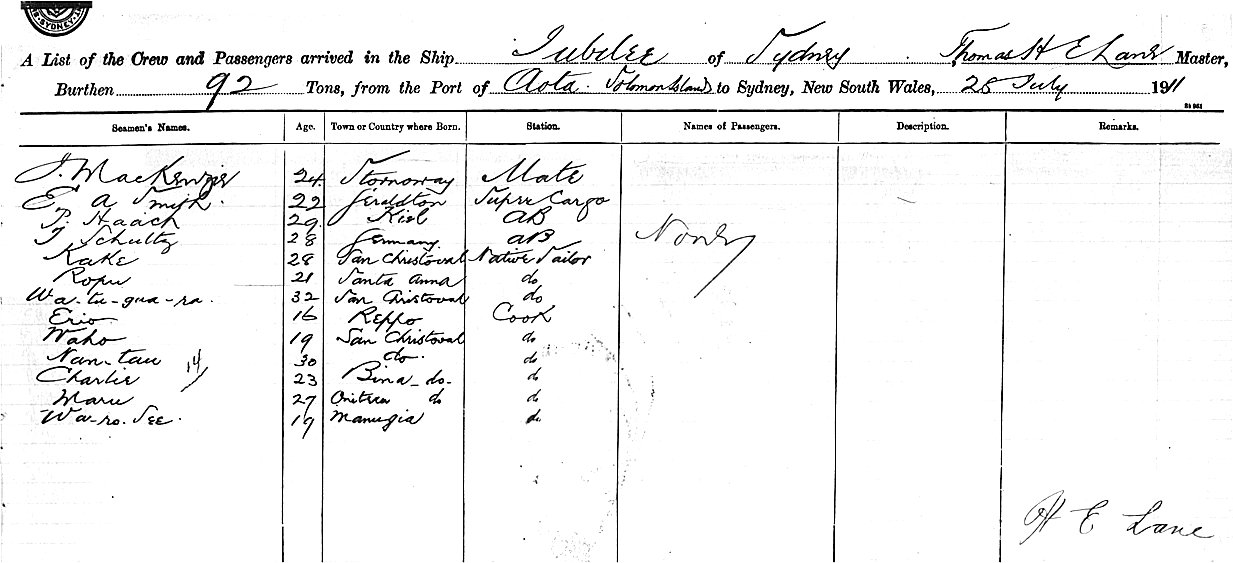 SYDNEY
A List of the Crew and Passengers arrived in the Ship Jubilee of Sydney Thomas H E Lane Master,
Burthen 92 Tons, from the Port of Aola Solomon Islands to Sydney, New South Wales, 28 July 1911
Seamen's Names. Age. Town or Country where Born. Station. Names of Passengers. Description. Remarks.
J. MacKenzie 24 Stornoway Mate
E a Smith 22 Geraldton Super Cargo
P. Haach 29 Kiel AB
J Schultz 28 Germany AB None
Kake 28 San Christoval Native Sailor
Ropu 21 Santa Anna do
Wa-tu-gua-ra. 32 San Christoval do
Erio 16 Reppo Cook
Waho 19 San Christoval do
Nan-tau 30 do. do
14
Charlie 23 Bina do do
Maru 27 do do
Wa-ro-See. 19 Manugia do
H E Lane